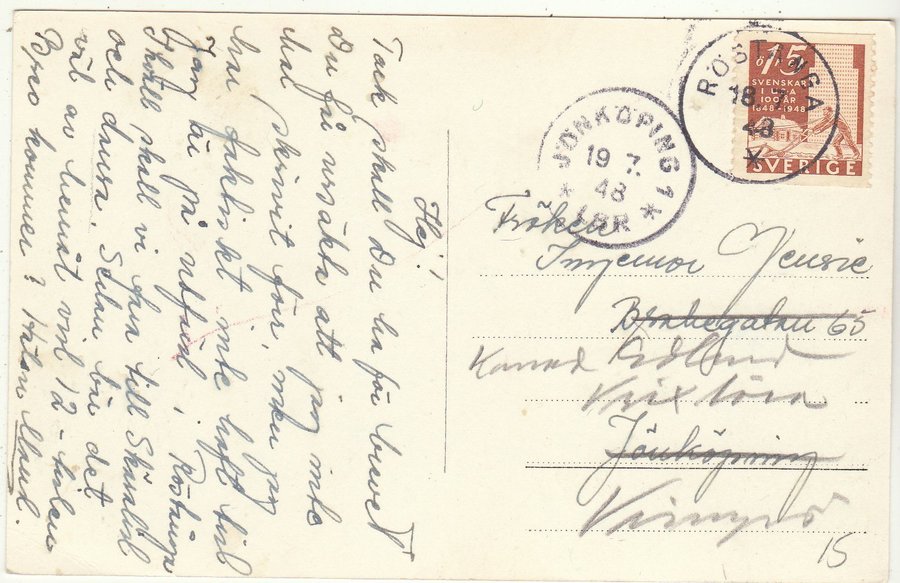 Hej!
Tack skall Du ha för brevet
Du få ursäkta att jag inte
har skrivit förr, men jag
har faktiskt inte haft tid
Jag är på utfärd, Röstånga
Ikväll skall vi fara till Skäralid
och dansa. Sedan bär det
väl av hemåt vid 12-tiden
Bra kommer?
RÖSTÅNGA
18 7
48
15
ÖRE
SVENSKAR
I USA
100 ÅR
1848-1948
SVERIGE
JÖNKÖPING 1
19 7.
48
LBR
Fröken
Ingemor
Brahegatan 65
Konrad
Jönköping
15